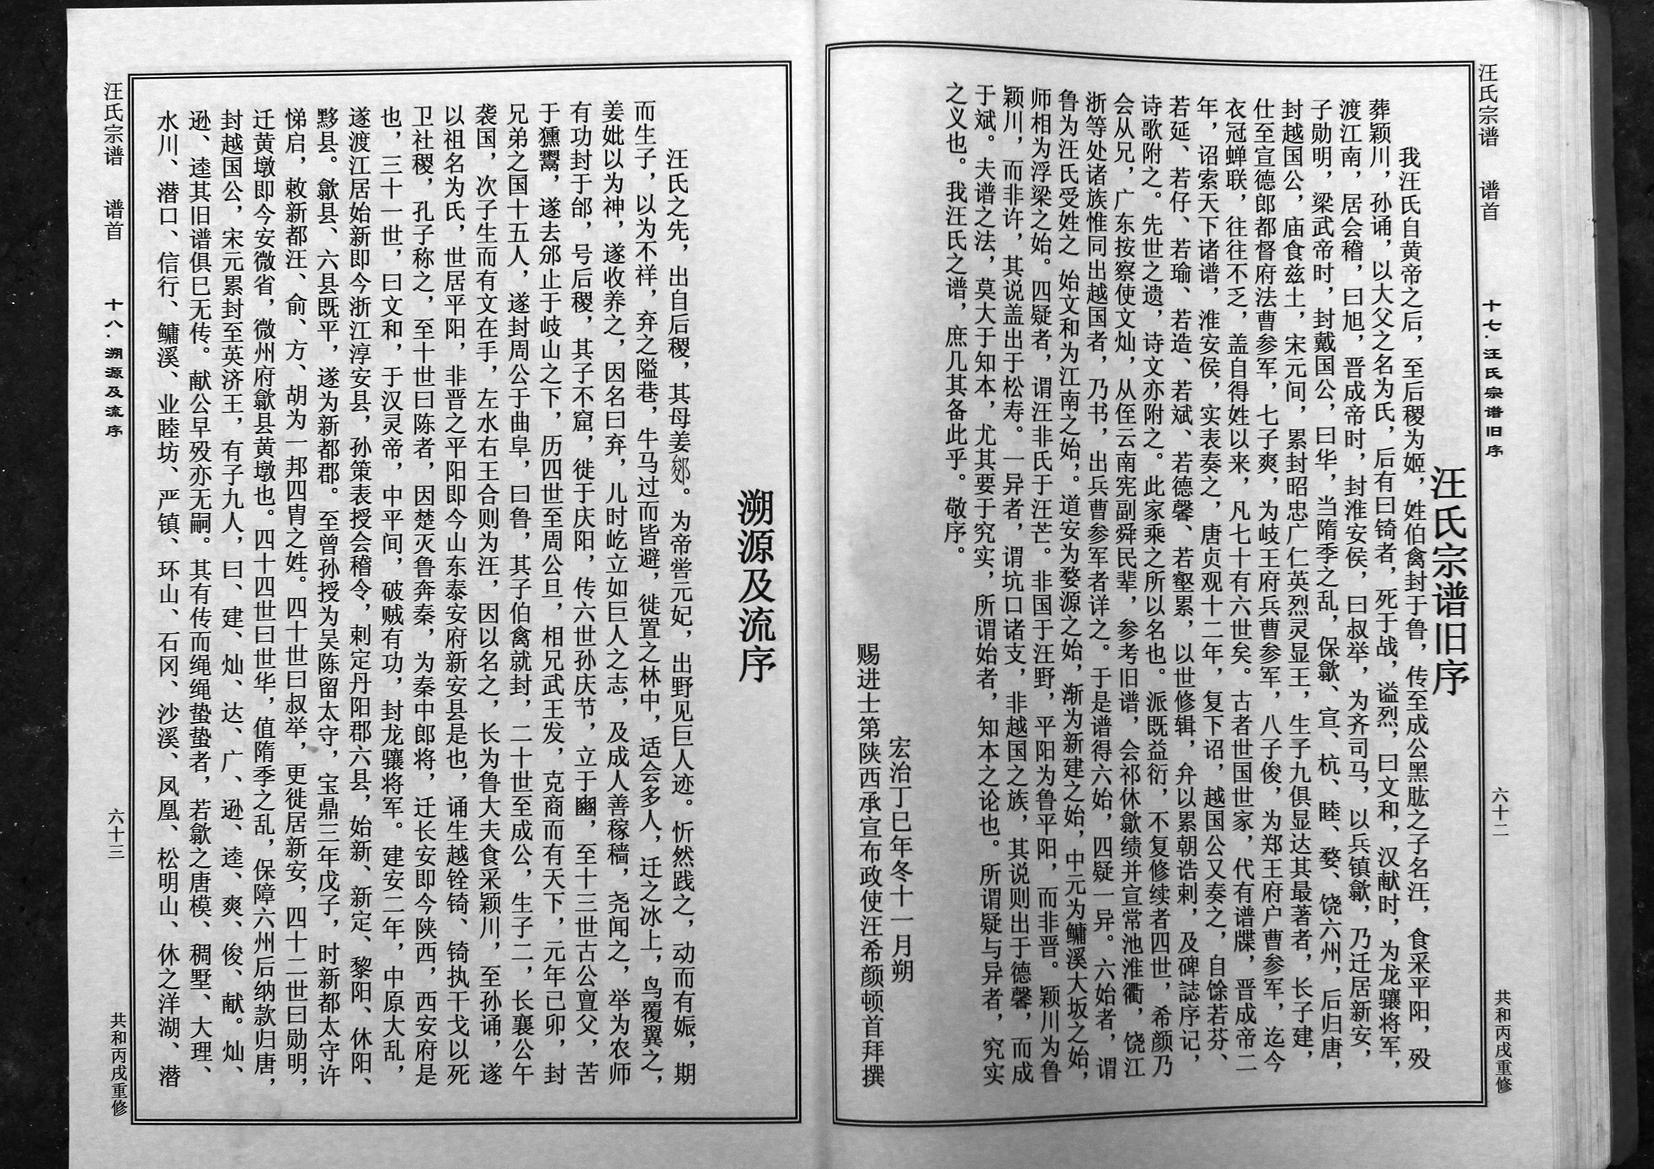 汪氏宗谱 谱首 十七·汪氏宗谱旧序 六十二 共和丙戌重修
汪氏宗谱旧序
我汪氏自黄帝之后，至后稷为姬，姓伯禽封于鲁，传至成公黑肱之子名汪，食采平阳，殁
葬颖川，孙诵，以大父之名为氏，后有曰锜者，死于战，谥烈，曰文和，汉献时，为龙骧将军，
渡江南，居会稽，曰旭，晋成帝时，封淮安侯，曰叔举，为齐司马，以兵镇歙，乃迁居新安，
子勋明，梁武帝时，封戴国公，曰华，当隋季之乱，保歙、宣、杭、睦、婺、饶六州，后归唐，
封越国公，庙食兹土，宋元间，累封昭忠广仁英烈灵显王，生子九俱显达其最著者，长子建，
仕至宣德郎都督府法曹参军，七子爽，为岐王府兵曹参军，八子俊，为郑王府户曹参军，迄今
衣冠蝉联，往往不乏，盖自得姓以来，凡七十有六世矣。古者世国世家，代有谱牒，晋成帝二
年，诏索天下诸谱，淮安侯，实表奏之，唐贞观十二年，复下诏，越国公又奏之，自馀若芬、
若延、若仔、若瑜、若造、若斌、若德馨、若壑累，以世修辑，弁以累朝诰剌，及碑誌序记，
诗歌附之。先世之遗，诗文亦附之。此家乘之所以名也。派既益衍，不复修续者四世，希颜乃
会从兄，广东按察使文灿，从侄云南宪副舜民辈，参考旧谱，会祁休歙绩并宣常池淮衢，饶江
浙等处诸族惟同出越国者，乃书，出兵曹参军者详之。于是谱得六始，四疑一异。六始者，谓
鲁为汪氏受姓之 始文和为江南之始，道安为婺源之始，渐为新建之始，中元为鳙溪大坂之始，
师相为浮梁之始。四疑者，谓汪非氏于汪芒。非国于汪野，平阳为鲁平阳，而非晋。颖川为鲁
颖川，而非许，其说盖出于松寿。一异者，谓坑口诸支，非越国之族，其说则出于德馨，而成
于斌。夫谱之法，莫大于知本，尤其要于究实，所谓始者，知本之论也。所谓疑与异者，究实
之义也。我汪氏之谱，庶几其备此乎。敬序。
宏治丁巳年冬十一月朔
赐进士第陕西承宣布政使汪希颜顿首拜撰
溯源及流序
汪氏之先，出自后稷，其母姜郯。为帝喾元妃，出野见巨人迹。忻然践之，动而有娠，期
而生子，以为不祥，弃之隘巷，牛马过而皆避，徙置之林中，适会多人，迁之冰上，鸟覆翼之，
姜妣以为神，遂收养之，因名曰弃，儿时屹立如巨人之志，及成人善稼穑，尧闻之，举为农师
有功封于邰，号后稷，其子不窟，徙于庆阳，传六世孙庆节，立于豳，至十三世古公亶父，苦
于獯鬻，遂去邠止于岐山之下，历四世至周公旦，相兄武王发，克商而有天下，元年已卯，封
兄弟之国十五人，遂封周公于曲阜，曰鲁，其子伯禽就封，二十世至成公，生子二，长襄公午
袭国，次子生而有文在手，左水右王合则为汪，因以名之，长为鲁大夫食采颖川，至孙诵，遂
以祖名为氏，世居平阳，非晋之平阳即今山东泰安府新安县是也，诵生越铨锜、锜执干戈以死
卫社稷，孔子称之，至十世曰陈者，因楚灭鲁奔秦，为秦中郎将，迁长安即今陕西，西安府是
也，三十一世，曰文和，于汉灵帝，中平间，破贼有功，封龙骧将军。建安二年，中原大乱，
遂渡江居始新即今浙江淳安县，孙策表授会稽令，剌定丹阳郡六县，始新、新定、黎阳、休阳、
黟县。歙县、六县既平，遂为新都郡。至曾孙授为吴陈留太守，宝鼎三年戊子，时新都太守许
悌启，敕新都汪、俞、方、胡为一邦四胄之姓。四十世曰叔举，更徙居新安，四十二世曰勋明，
迁黄墩即今安微省，微州府歙县黄墩也。四十四世曰世华，值隋季之乱，保障六州后纳款归唐，
封越国公，宋元累封至英济王，有子九人，曰、建、灿、达、广、逊、逵、爽、俊、献。灿、
逊、逵其旧谱俱巳无传。献公早殁亦无嗣。其有传而绳绳蛰蛰者，若歙之唐模、稠墅、大理、
水川、潜口、信行、鳙溪、业睦坊、严镇、环山、石冈、沙溪、凤凰、松明山、休之洋湖、潜
汪氏宗谱 谱首 十八·溯源及流序 六十三 共和丙戌重修